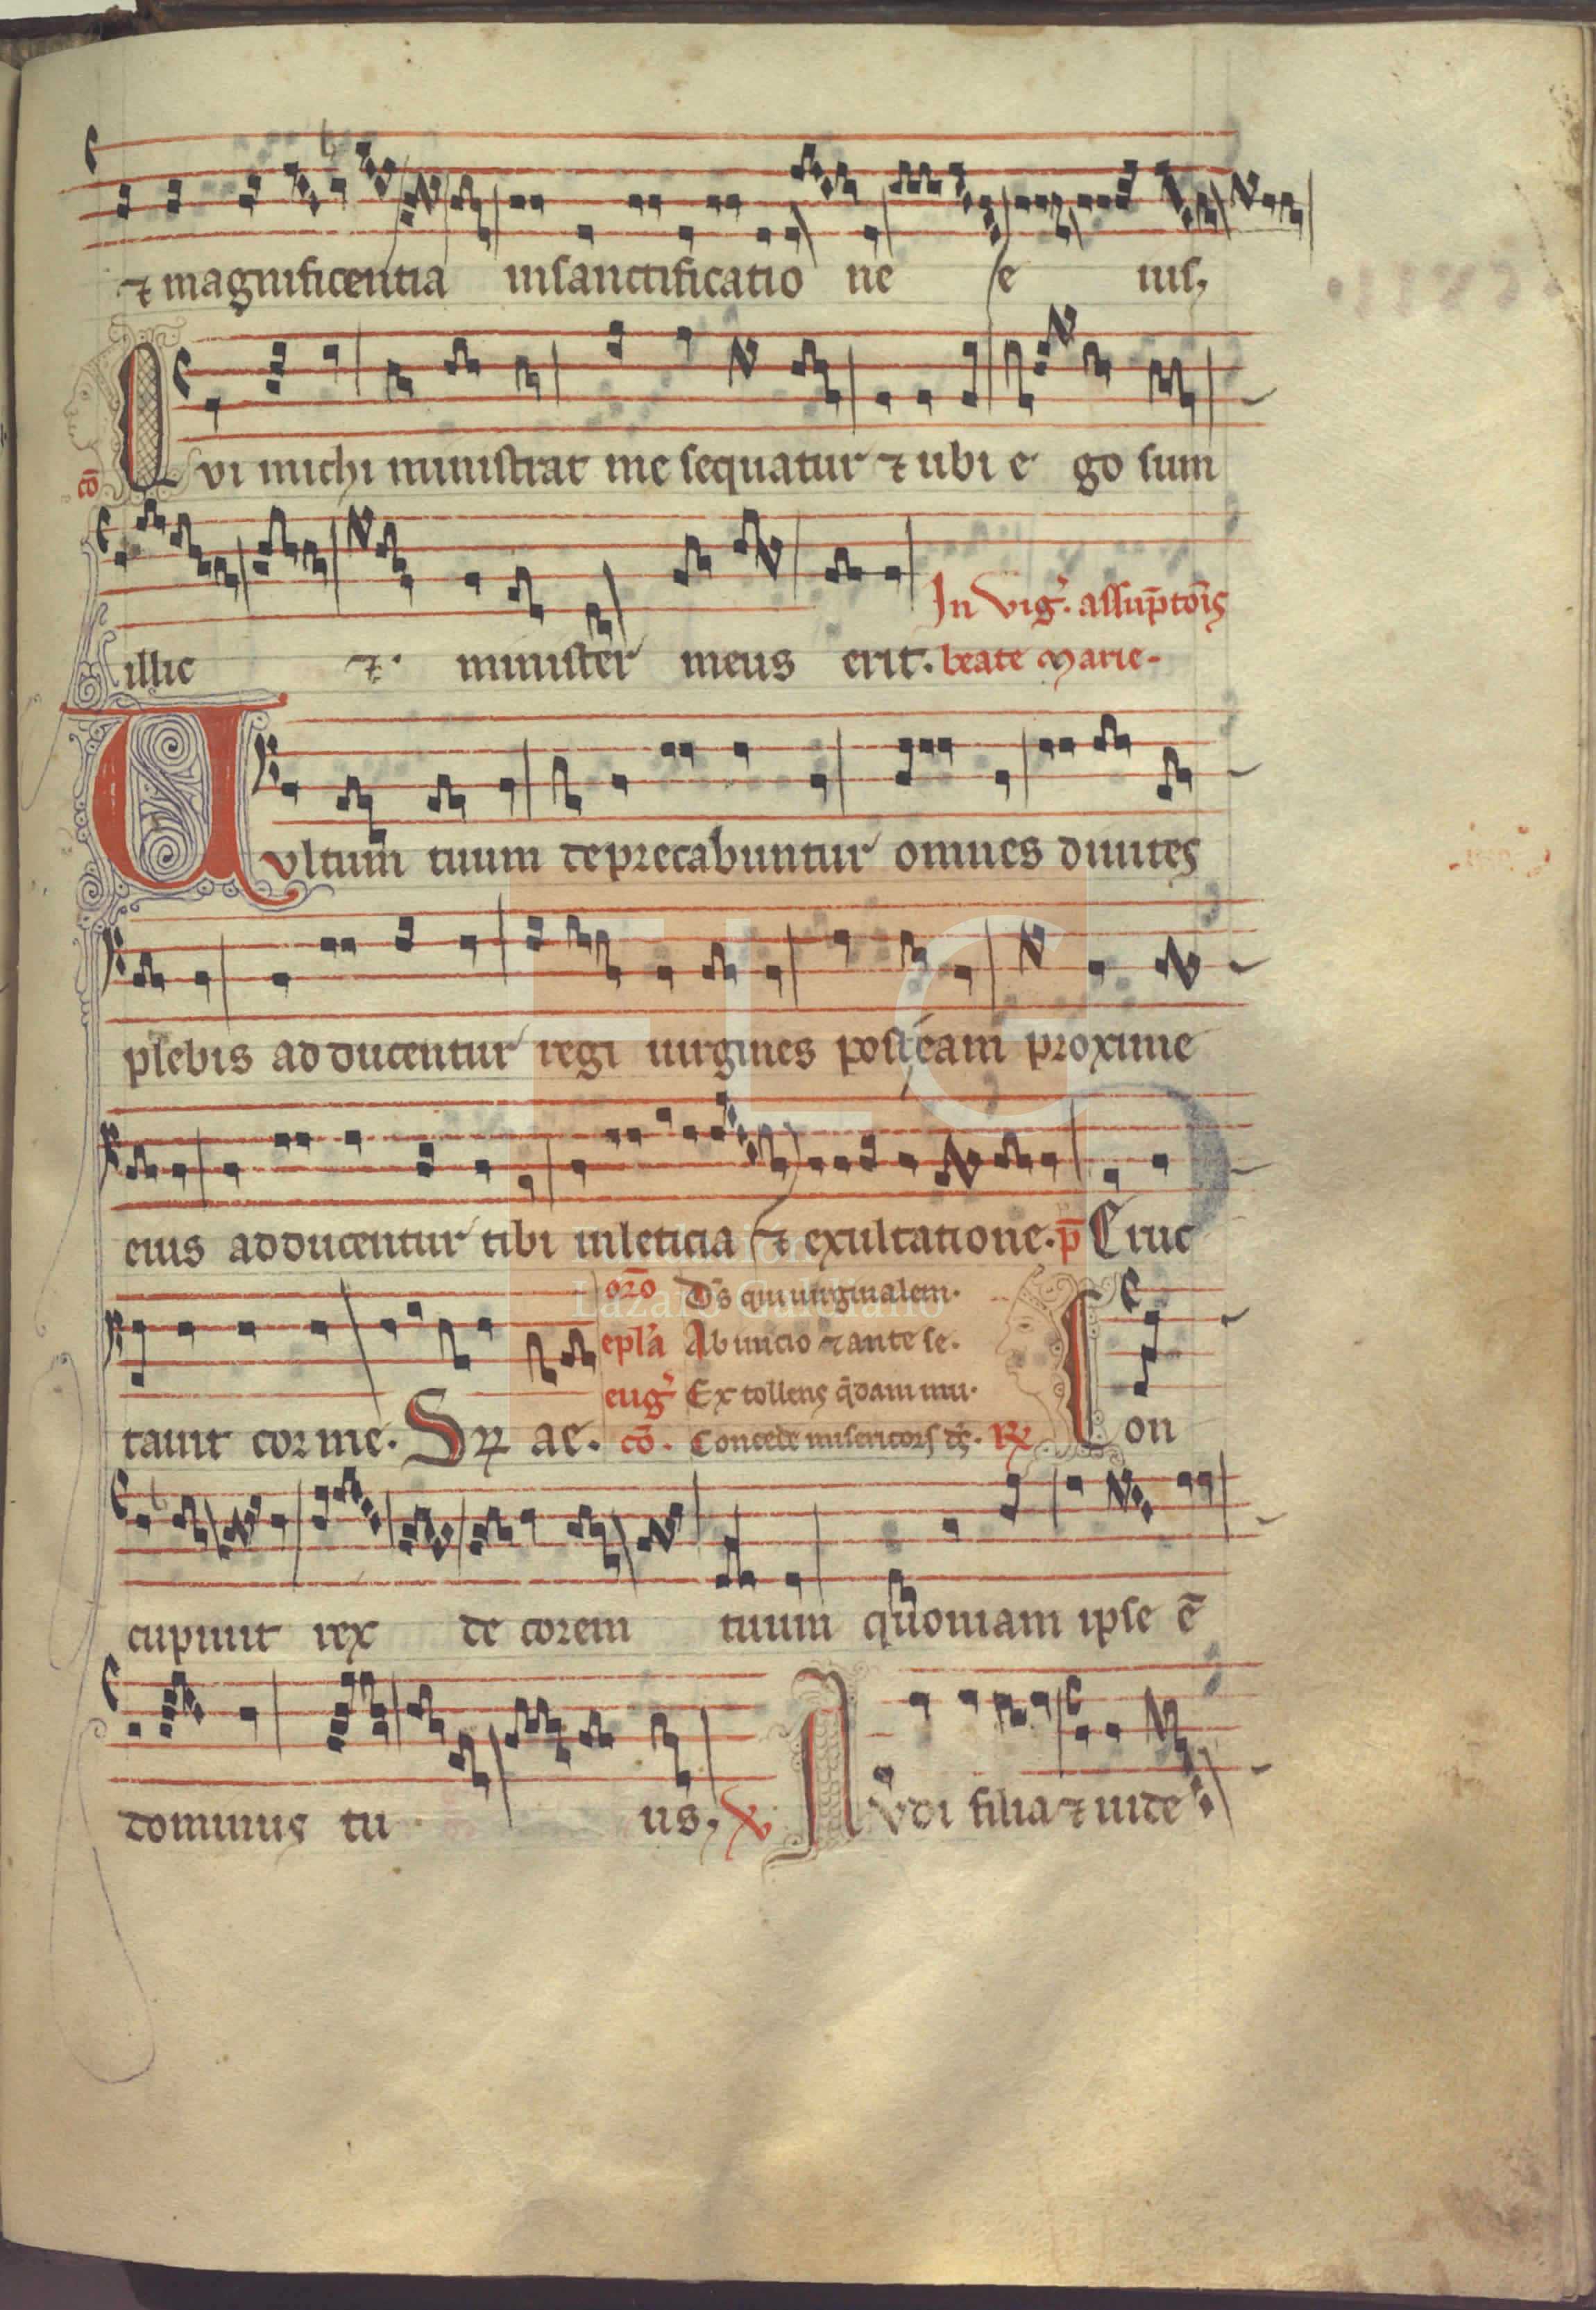 ⁊ magnificentia insanctificatio ne e ius,
Qvi michi ministrat me sequatur ⁊ ubi e go sum
cō
illic ⁊ minister meus erit. In vig. assūptōis
beate marie.
Vvltum tuum deprecabuntur omnes diuites
plebis adducentur regi uirgines post eam proxime
eius adducentur tibi inleticia ⁊ exultatione. p̄ Eruc
tauit cor me. S ae.
orō D̄s qui uirginalem.
epl'a Ab inicio ⁊ ante se.
eug' Extollens q̄dam mu.
cō. Concede misericors d̄s. R Con
cupiuit rex de corem tuum quoniam ipse ē
dominus tu us, V Avdi filia ⁊ uide
FLG
Fundación
Lázaro Galdiano